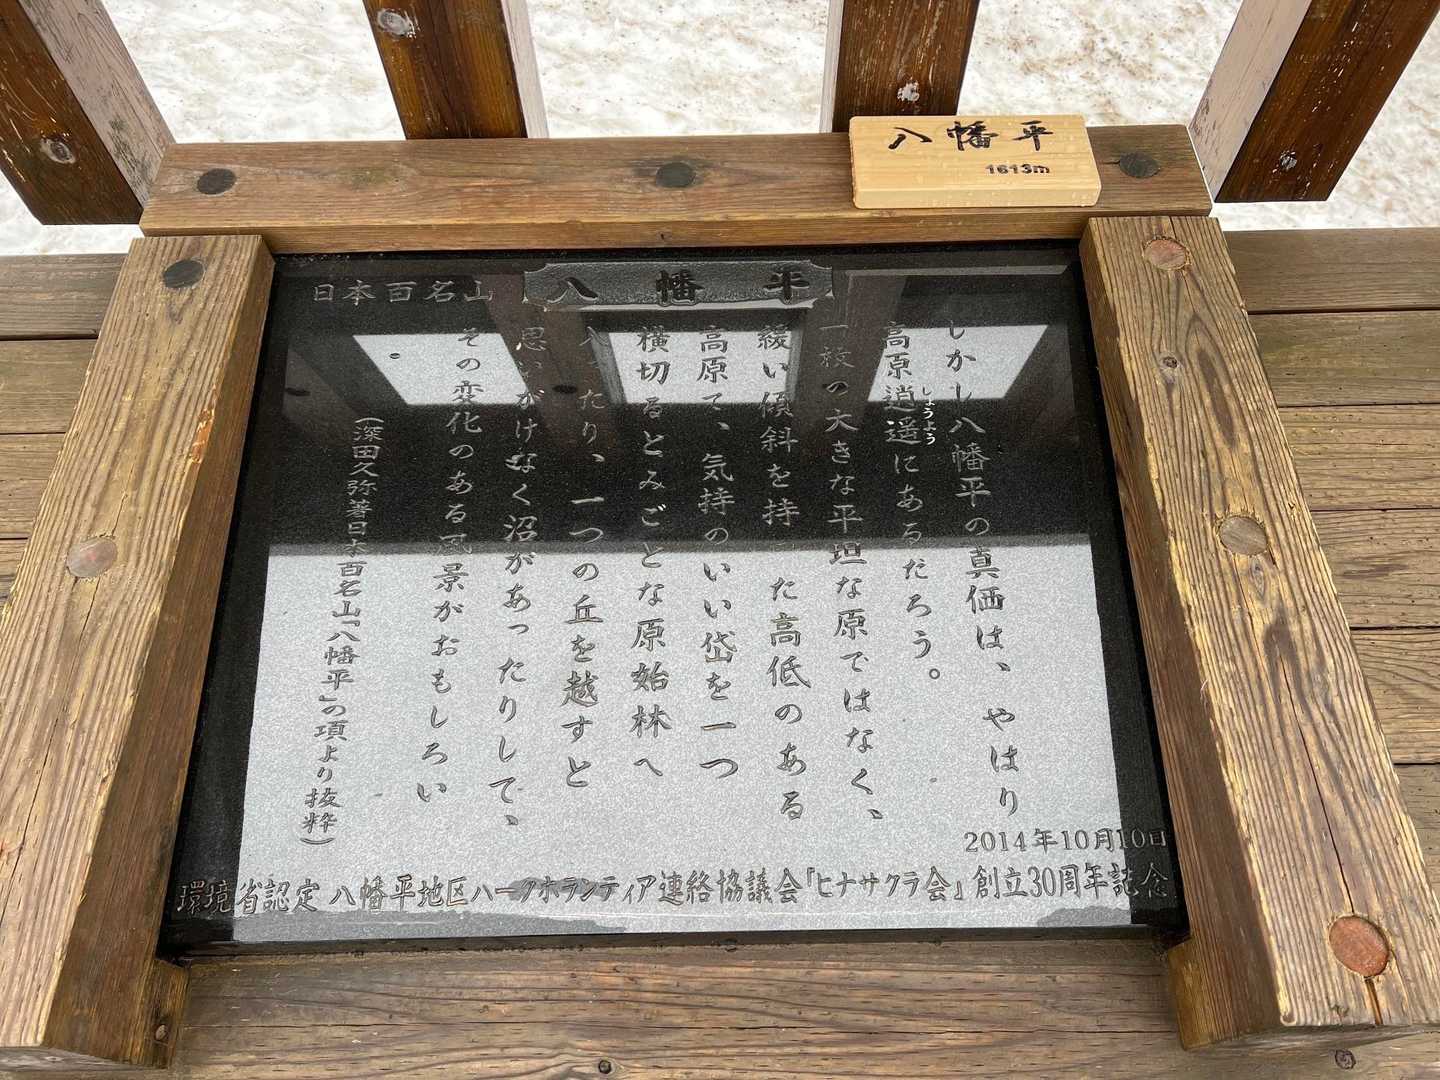 八幡平
1613m
日本百名山 八幡平
しかし八幡平の真価は、やはり
高原逍遥にあるだろう。
しょうよう
一緩の大きな平坦な原ではなく、
緩い傾斜を持った高低のある
高原で、気持のいい岱を一つ
横切るとみごとな原始林へ
入ったり、一つの丘を越すと
思いがけなく沼があったりして、
その変化のある風景がおもしろい
(深田久弥著日本百名山「八幡平」の項より抜粋)
2014年10月10日
環境省認定 八幡平地区パークボランティア連絡協議会「ヒナザクラ会」創立30周年記念